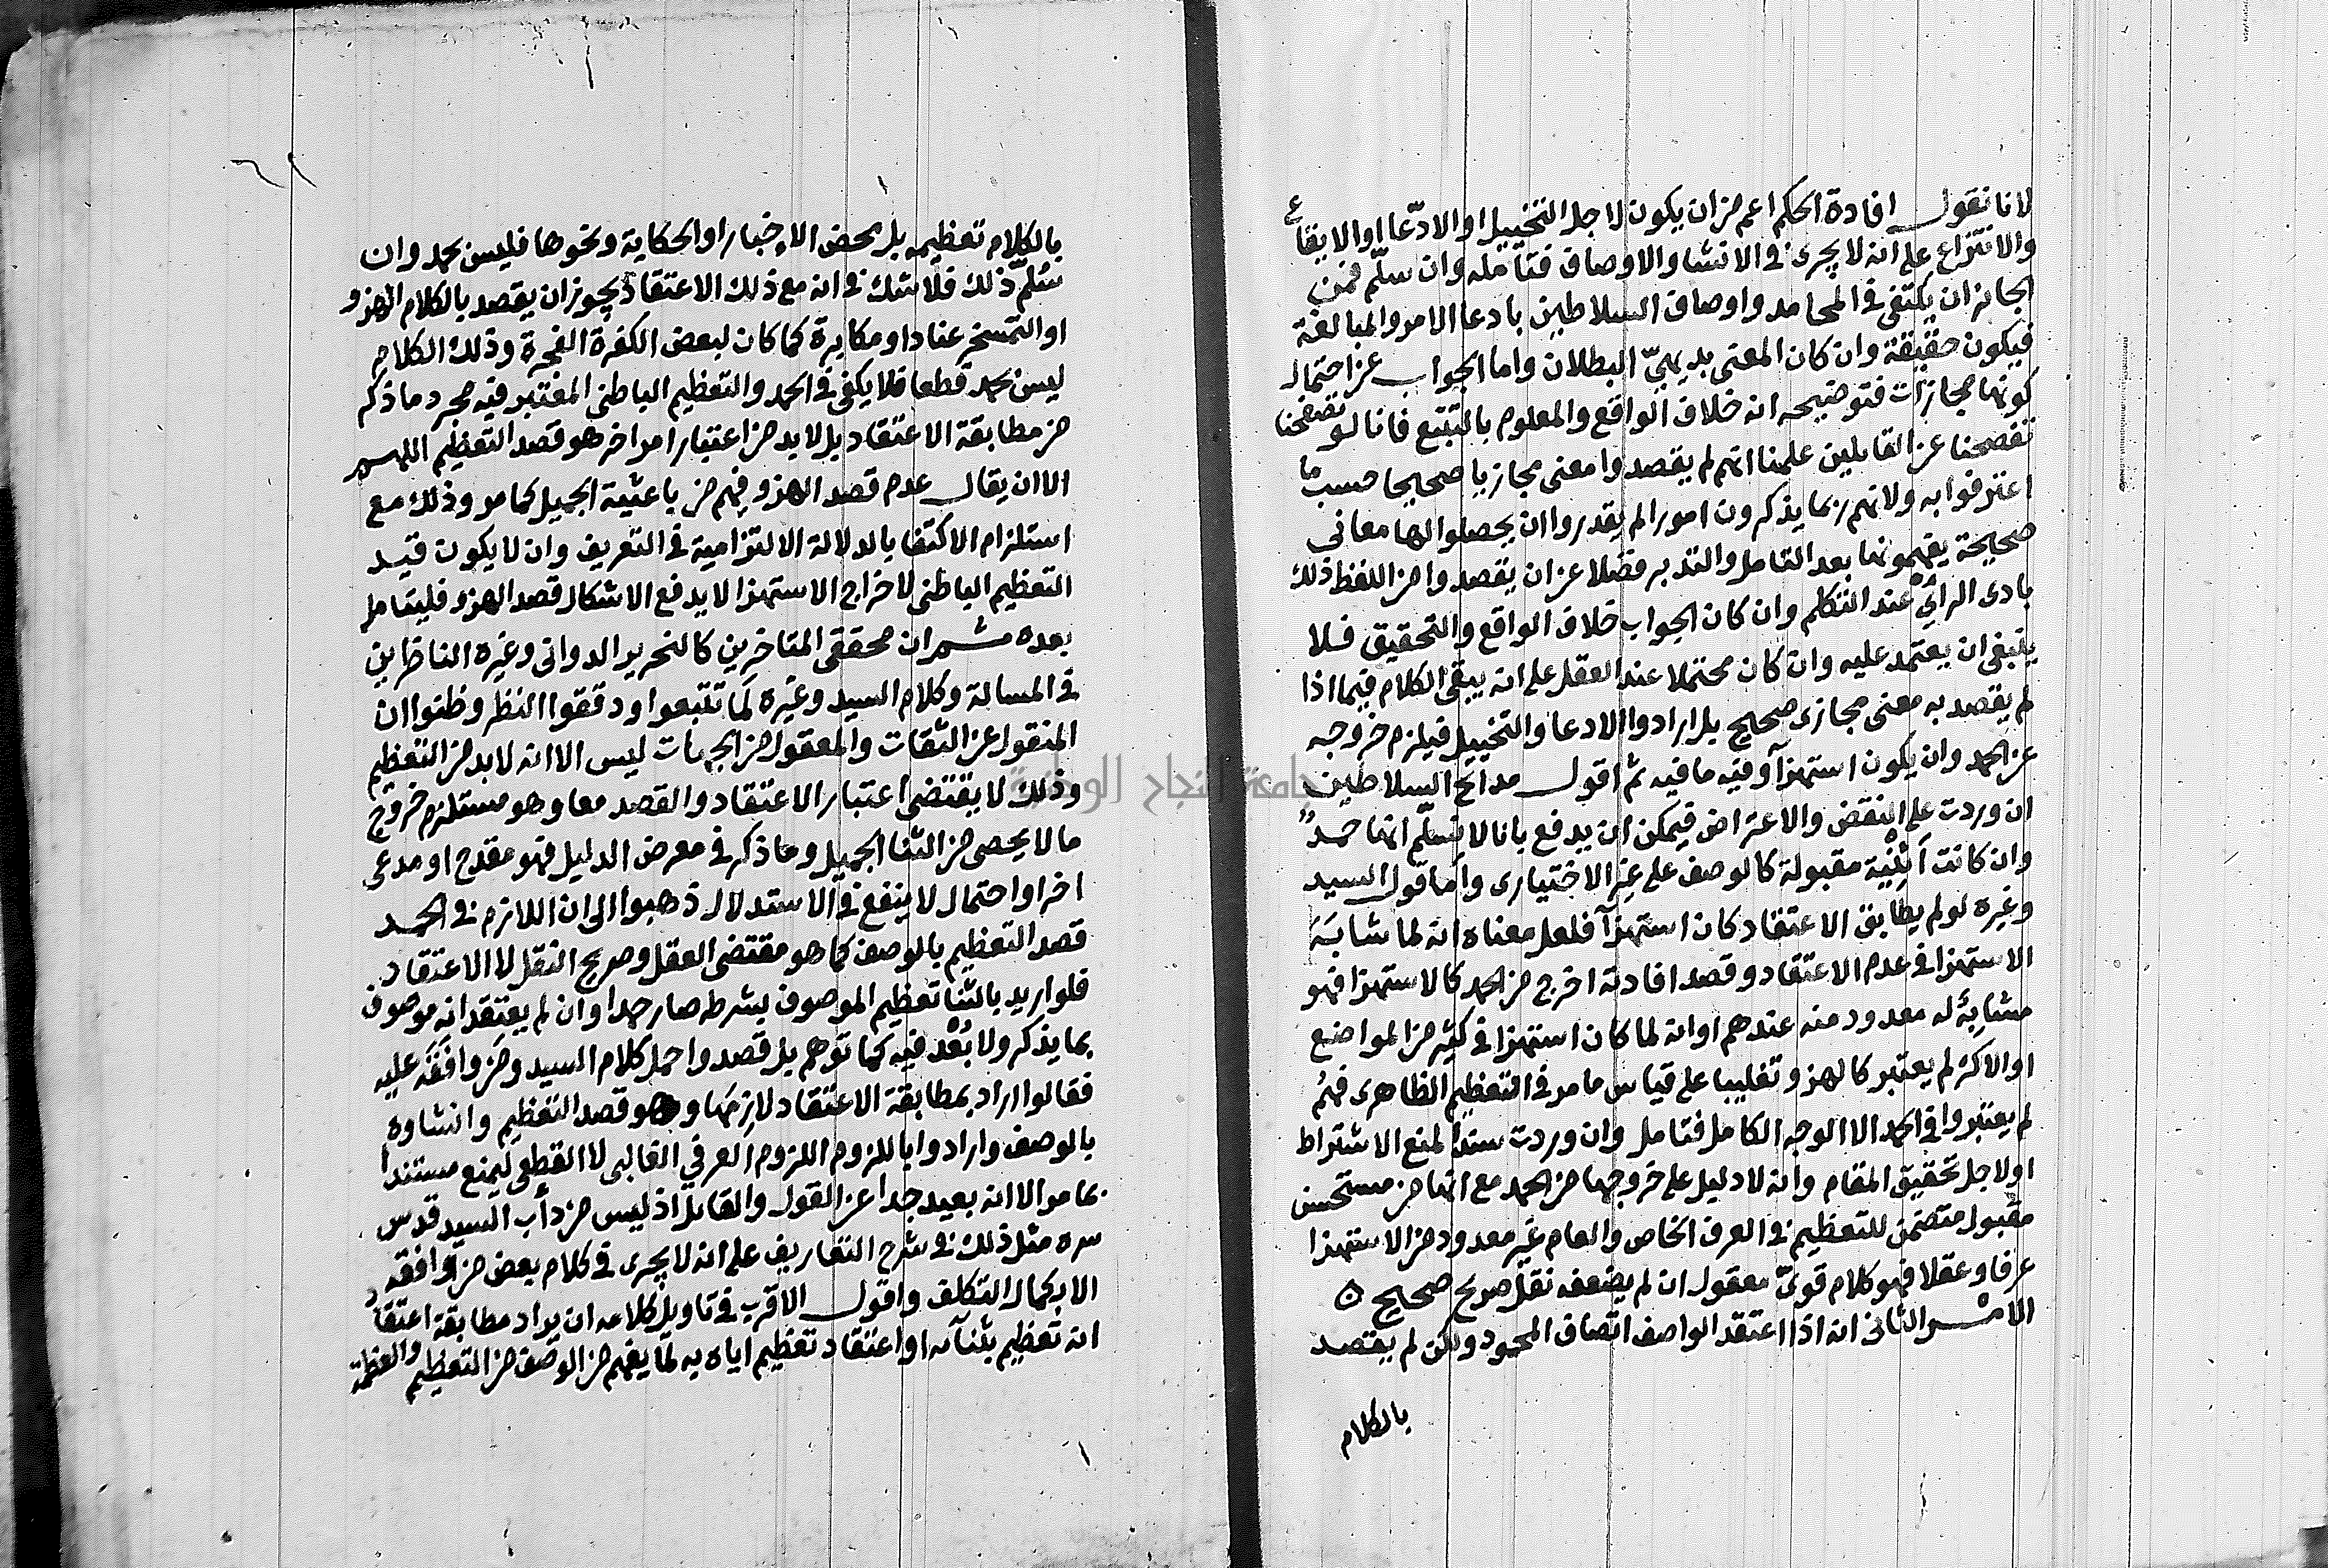 لانا نقول افادة الحكم اعم من ان يكون لاجل التخييل او الادّعا او الايقاع
والانتزاع على انه لا يجرى فى الانشا والاوصاف فتامله وان سلّم فمن
الجائز ان يكتفى فى المحامد واوصاف السلاطين بادعا الامر والمبالغة
فيكون حقيقة وان كان المعنى بديهىّ البطلان واما الجواب عن احتمال
كونها مجازات فتوضيحه انه خلاف الواقع والمعلوم بالتتبع فانا لو تصفحنا
تفصحنا عن القايلين علمنا انهم لم يقصدوا معنى مجازيا صحيحا حسب ما
اعترفوا به ولانهم ربما يذكرون امورا لم يقدروا ان يحصلوا لها معانى
صحيحة يفهمونها بعد التامل والتدبر فضلا عن ان يقصدوا من اللفظ ذلك
بادى الرأى عند التكلم وان كان الجواب خلاف الواقع والتحقيق فلا
ينبغى ان يعتمد عليه وان كان محتملا عند العقل على انه يبقى الكلام فيما اذا
لم يقصد به معنى مجازى صحيح بل ارادوا الادعا والتخييل فيلزم خروجه
عن الحمد وان يكون استهزآ وفيه ما فيه ثم اقول مدائح السلاطين
ان وردت على النقض والاعتراض فيمكن ان يدفع بانا لا نسلّم انها حمدٌ
وان كانت اثنية مقبولة كالوصف على غير الاختيارى واما قول السيد
وغيره لو لم يطابق الاعتقاد كان استهزآ فلعل معناه انه لما شابَهَ
الاستهزا فى عدم الاعتقاد وقصد افادته اخرج من الحمد كالاستهزا فهو
مشابهٌ له معدود منه عندهم او انه لما كان استهزا فى كثير من المواضع
او الاكثر لم يعتبر كالهزو تغليبا على قياس ما مر فى التعظيم الظاهرى فهُم
لم يعتبروا فى الحمد الا الوجه الكامل فتامل وان وردت سندا لمنع الاشتراط
او لاجل تحقيق المقام وانه لا دليل على خروجها من الحمد مع انها من مستحسن
مقبول متضمن للتعظيم فى العرف الخاص والعام غير معدود من الاستهزا
عرفا وعقلا فهو كلام قوىّ معقول ان لم يضعفه نقل صريح صحيح ه
الامر الثانى انه اذا اعتقد الواصف اتصاف المحمود ولكن لم يقصد
بالكلام
بالكلام تعظيمه بل محض الاخبار او الحكاية ونحوها فليس بحمد وان
سُلّم ذلك فلا شك فى انه مع ذلك الاعتقاد يجوز ان يقصد بالكلام الهزو
او التمسخر عنادا ومكابرة كما كان لبعض الكفرة الفجرة وذلك الكلام
ليس بحمد قطعا فلا يكفى فى الحمد والتعظيم الباطنى المعتبر فيه مجرد ما ذكر
من مطابقة الاعتقاد بل لا بد من اعتبار امر اخر هو قصد التعظيم اللهم
الا ان يقال عدم قصد الهزو فهم من باعثية الجميل كما مر وذلك مع
استلزام الاكتفا بالدلالة الالتزامية فى التعريف وان لا يكون قيد
التعظيم الباطنى لاخراج الاستهزا لا يدفع الاشكال قصد الهزو فليتامل
بعده ثم ان محققى المتاخرين كالنحرير الدوانى وغيره الناظرين
فى المسالة وكلام السيد وغيره لما تتبعوا ودققوا النظر وظنوا ان
المنقول عن الثقات والمعقول من الجهات ليس الا انه لا بد من التعظيم
وذلك لا يقتضى اعتبار الاعتقاد والقصد معا وهو مستلزم خروج
ما لا يحصى من الثنا الجميل وما ذكر فى معرض الدليل فهو مقدح او مدعى
اخر او احتمال لا ينفع فى الاستدلال ذهبوا الى ان اللازم فى الحمد
قصد التعظيم بالوصف كما هو مقتضى العقل وصريح النقل لا الاعتقاد
فلو اريد بالثنا تعظيم الموصوف بشرطه صار حمدا وان لم يعتقد انه موصوف
بما يذكر ولا بُعْد فيه كما توهم بل قصدوا حمل كلام السيد ومن وافقه عليه
فقالوا اراد بمطابقة الاعتقاد لازمها وهو قصد التعظيم وانشاوه
بالوصف وارادوا باللزوم اللزوم العرفى الغالبى لا القطعى ليمنع مستندا
بما مر الا انه بعيد جدا عن القول والقائل اذ ليس من دأب السيد قدس
سره مثل ذلك فى شرح التعاريف على انه لا يجرى فى كلام بعض من وافقه
الا بكمال التكلف واقول الاقرب فى تاويل كلامه ان يراد مطابقة اعتقاد
انه تعظيم بثنآئه او اعتقاد تعظيم اياه به لما يفهم من الوصف من التعظيم والعظمة
جامعة النجاح الوطنية